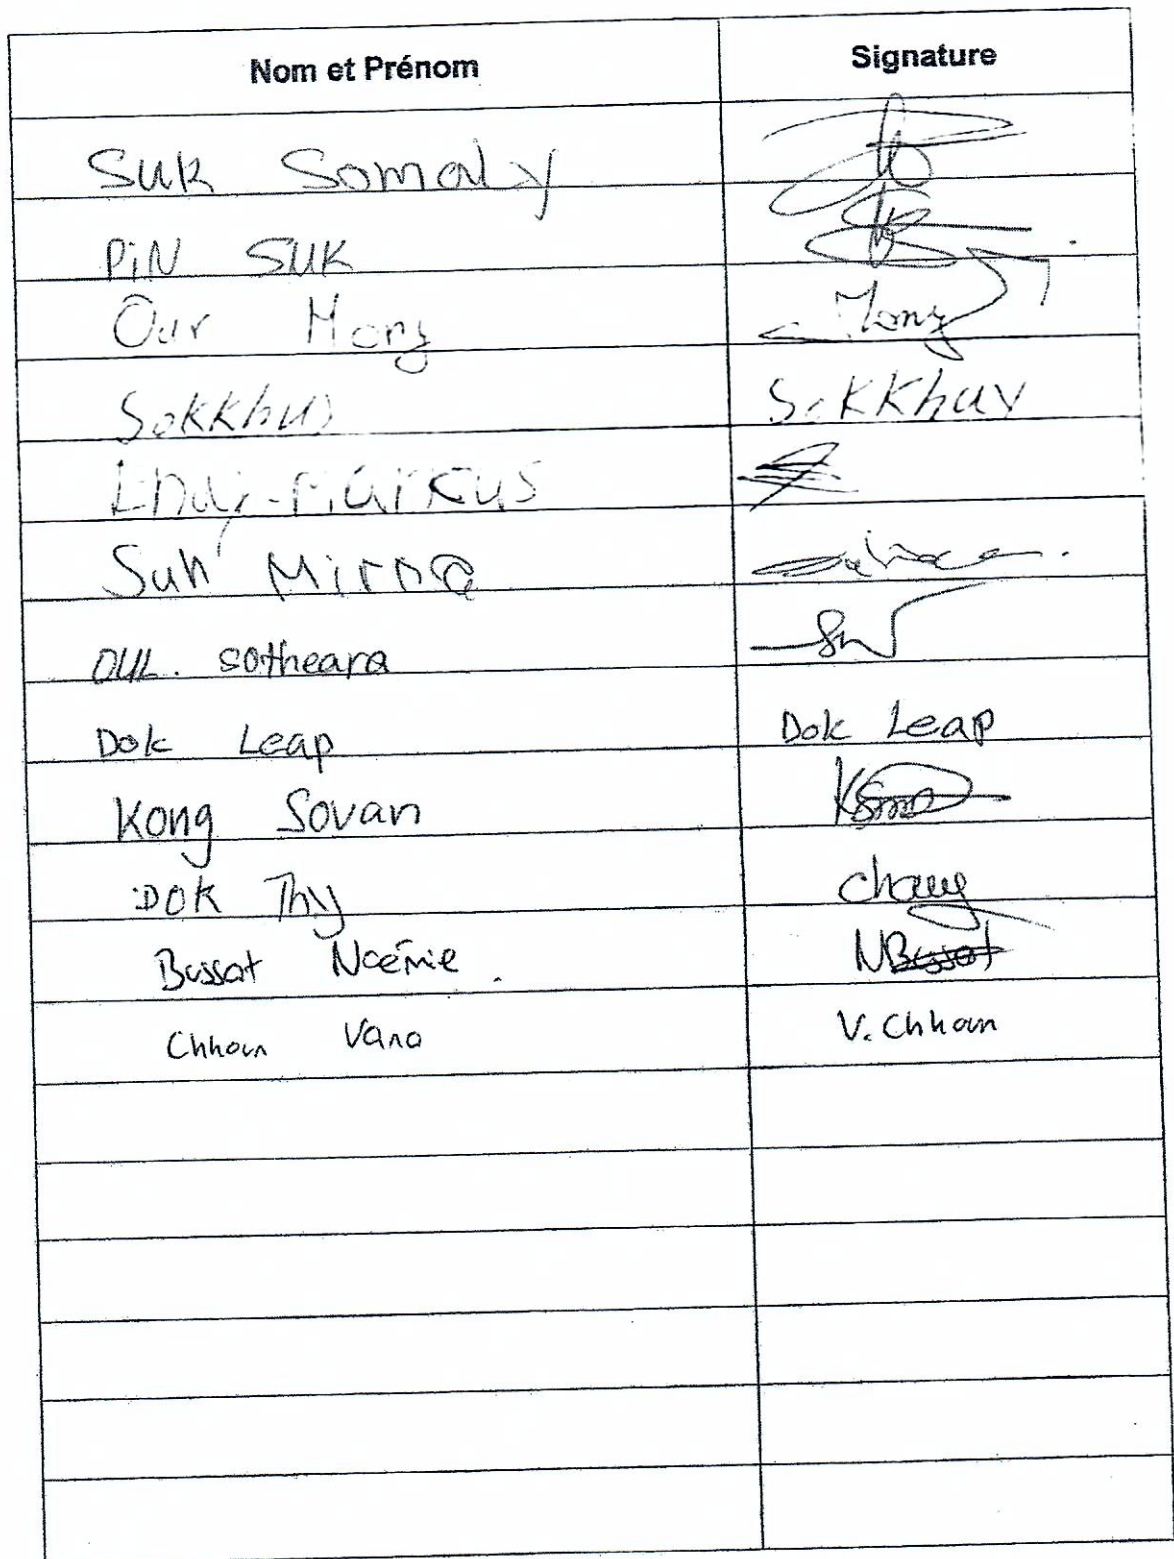 Nom et Prénom Signature
Suk Somaly
PiN SUK
Our Mony Mony
Sokkhuy Sokkhuy
Markus
Suh Mirna
OUL. sotheara
Dok Leap Dok Leap
Kong Sovan
DOK Thy chany
Bussat Noémie. NBussat
Chhoun Vana V. Chhoun